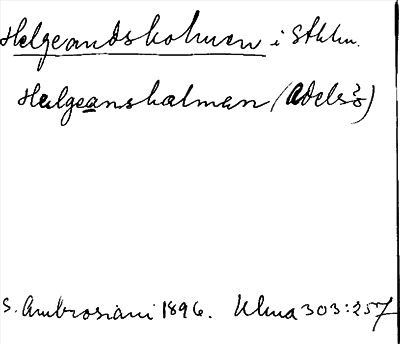 Helgeandsholmen i Sthlm.
Helgeansholmen (Adelsö)
S. Ambrosiani 1896. Ulma 303:257